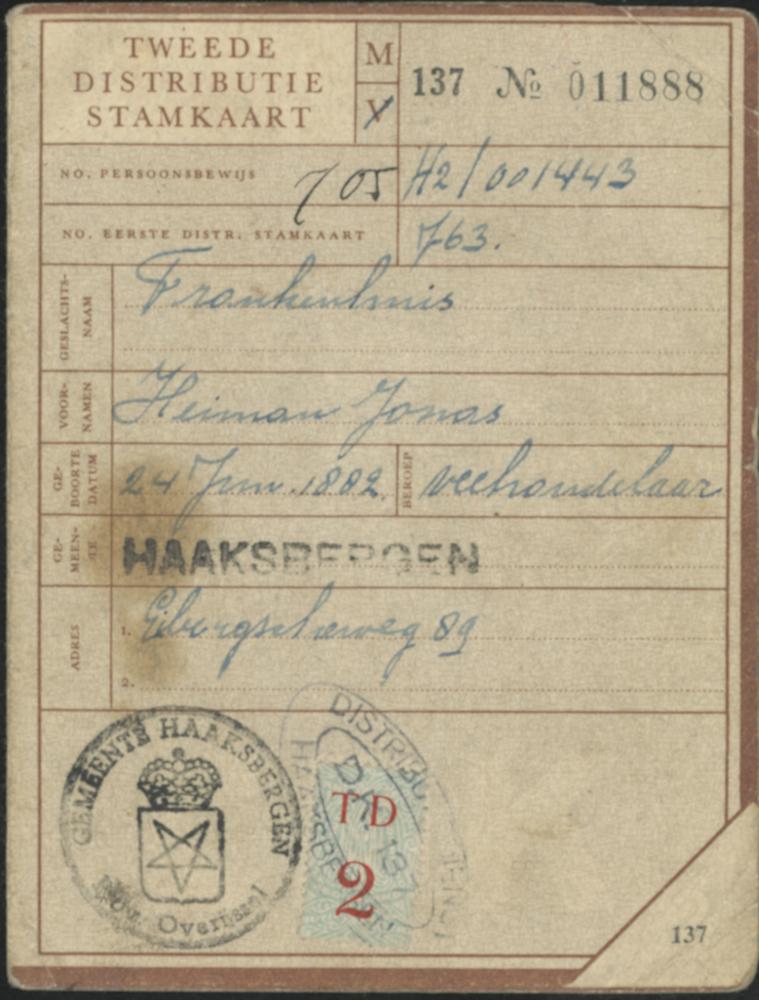 TWEEDE
DISTRIBUTIE
STAMKAART
M
V
137 № 011888
NO. PERSOONSBEWIJS
705 H2/001443
NO. EERSTE DISTR. STAMKAART
763.
GESLACHTS-
NAAM
Frankenhuis
VOOR-
NAMEN
Heiman Jonas
GE-
BOORTE
DATUM
24 Jun. 1882
BEROEP
veehandelaar
GE-
MEEN-
TE
HAAKSBERGEN
ADRES
1. Eibergscheweg 89
2.
GEMEENTE HAAKSBERGEN
Overijssel
DISTRIBU
D.K. 137
HAAKSBERGEN
TD
2
137